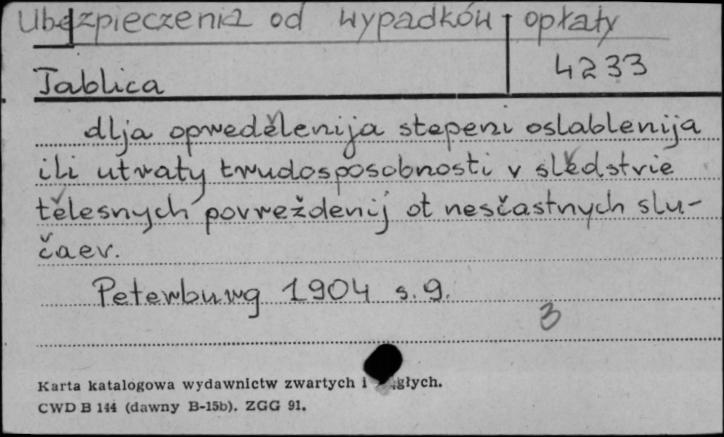 Ubezpieczenia od wypadków opłaty
Tablica 4233
dlja opredělenija stepeni oslablenija
ili utraty trudosposobnosti v slědstvie
tělesnych povreždenij ot nesčastnych slu-
čaev.
Peterburg 1904 s. 9.
3
Karta katalogowa wydawnictw zwartych i głych.
CWD B 144 (dawny B-15b). ZGG 91.